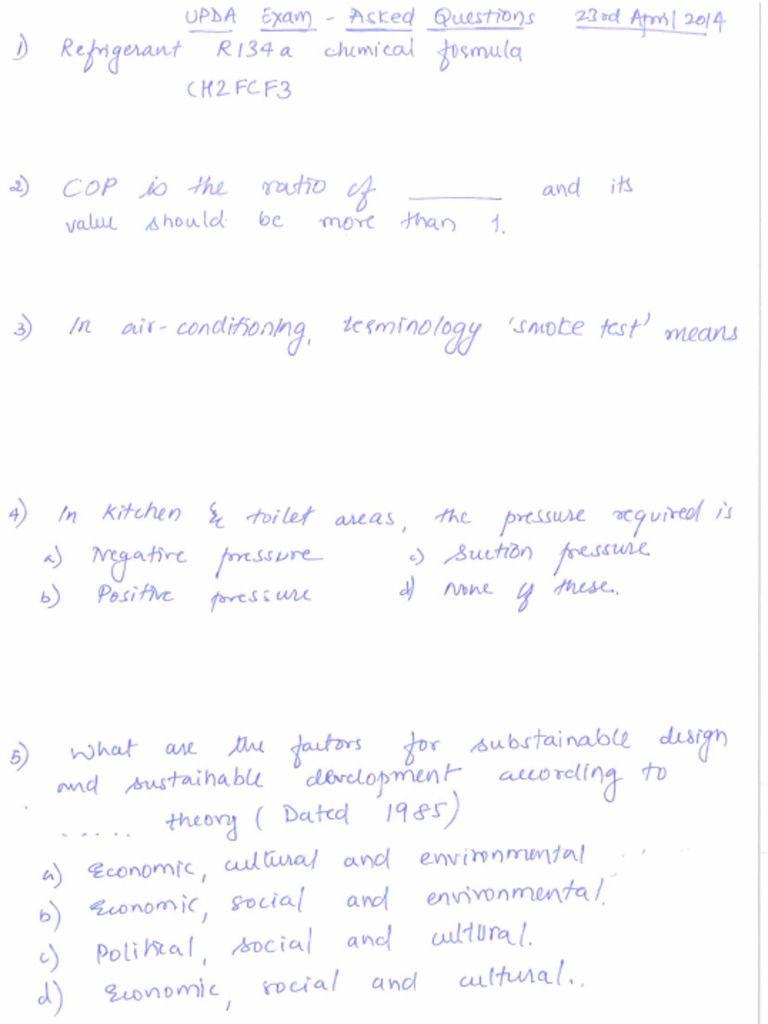 UPDA Exam - Asked Questions 23rd April 2014
1) Refrigerant R134a chemical formula
CH2FCF3
2) COP is the ratio of ________ and its
value should be more than 1.
3) In air-conditioning, terminology 'smoke test' means
4) In kitchen & toilet areas, the pressure required is
a) Negative pressure c) suction pressure
b) Positive pressure d) none of these.
5) What are the factors for substainable design
and sustainable development according to
..... theory (Dated 1985)
a) Economic, cultural and environmental
b) Economic, social and environmental.
c) Political, social and cultural.
d) Economic, social and cultural..